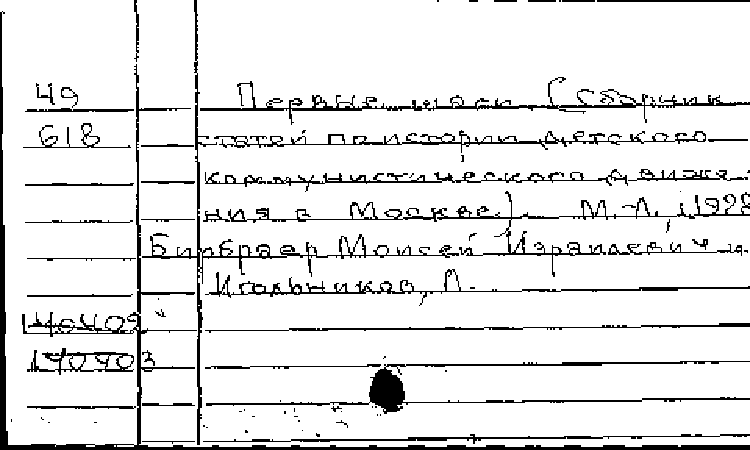 49 Первые шаги. (Сборник
618 статей по истории детского
коммунистического движе-
ния в Москве). М.-Л., 1928
Бирбраер Моисей Израилевич и
Игольников, Л.
140402
140403